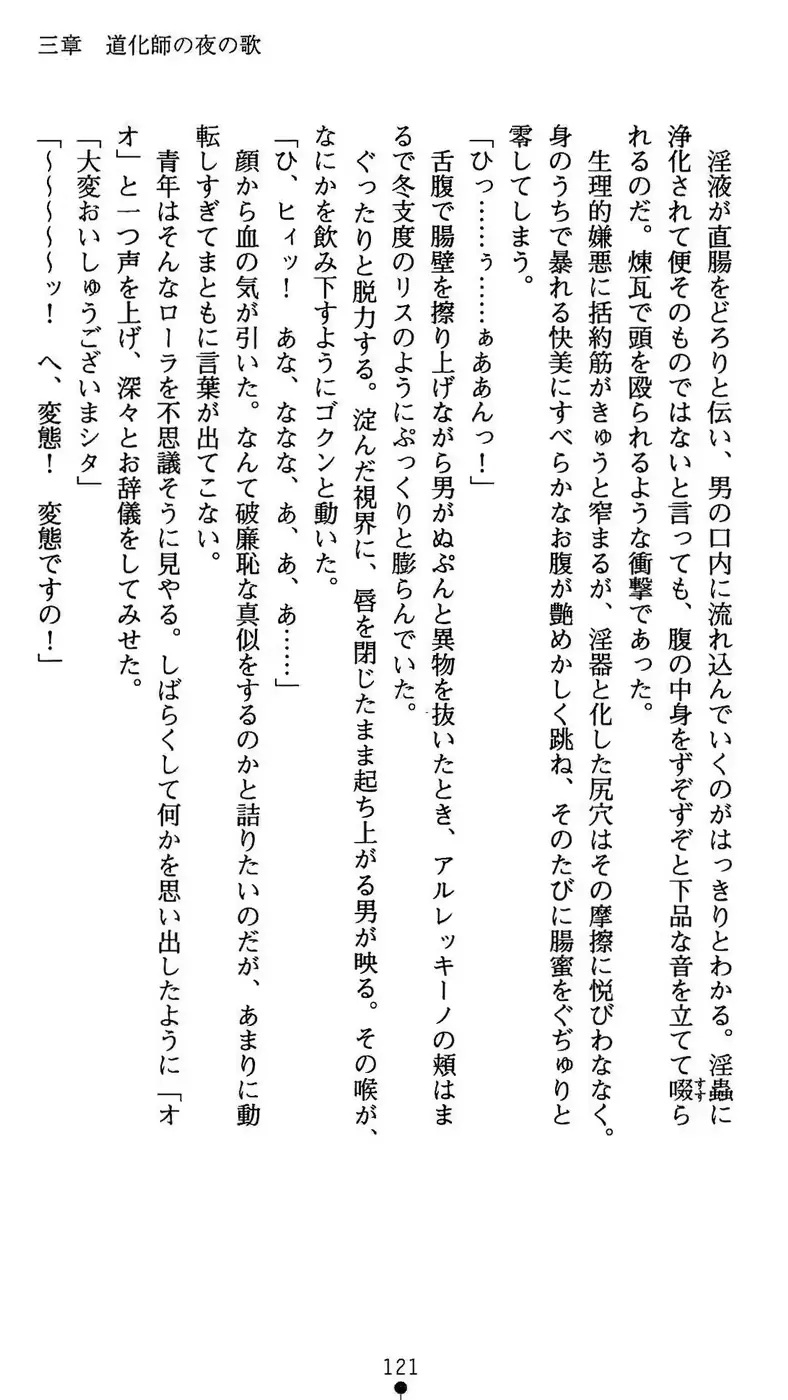 三章　道化師の夜の歌
　淫液が直腸をどろりと伝い、男の口内に流れ込んでいくのがはっきりとわかる。淫蟲に
浄化されて便そのものではないと言っても、腹の中身をずぞずぞと下品な音を立てて啜ら
れるのだ。煉瓦で頭を殴られるような衝撃であった。
　生理的嫌悪に括約筋がきゅうと窄まるが、淫器と化した尻穴はその摩擦に悦びわななく。
身のうちで暴れる快美にすべらかなお腹が艶めかしく跳ね、そのたびに腸蜜をぐぢゅりと
零してしまう。
「ひっ……ぅ……ぁああんっ！」
　舌腹で腸壁を擦り上げながら男がぬぷんと異物を抜いたとき、アルレッキーノの頬はま
るで冬支度のリスのようにぷっくりと膨らんでいた。
　ぐったりと脱力する。淀んだ視界に、唇を閉じたまま起ち上がる男が映る。その喉が、
なにかを飲み下すようにゴクンと動いた。
「ひ、ヒィッ！　あな、ななな、あ、あ、あ……」
　顔から血の気が引いた。なんて破廉恥な真似をするのかと詰りたいのだが、あまりに動
転しすぎてまともに言葉が出てこない。
　青年はそんなローラを不思議そうに見やる。しばらくして何かを思い出したように「オ
オ」と一つ声を上げ、深々とお辞儀をしてみせた。
「大変おいしゅうございまシタ」
「～～～～～ッ！　へ、変態！　変態ですの！」
すす
121